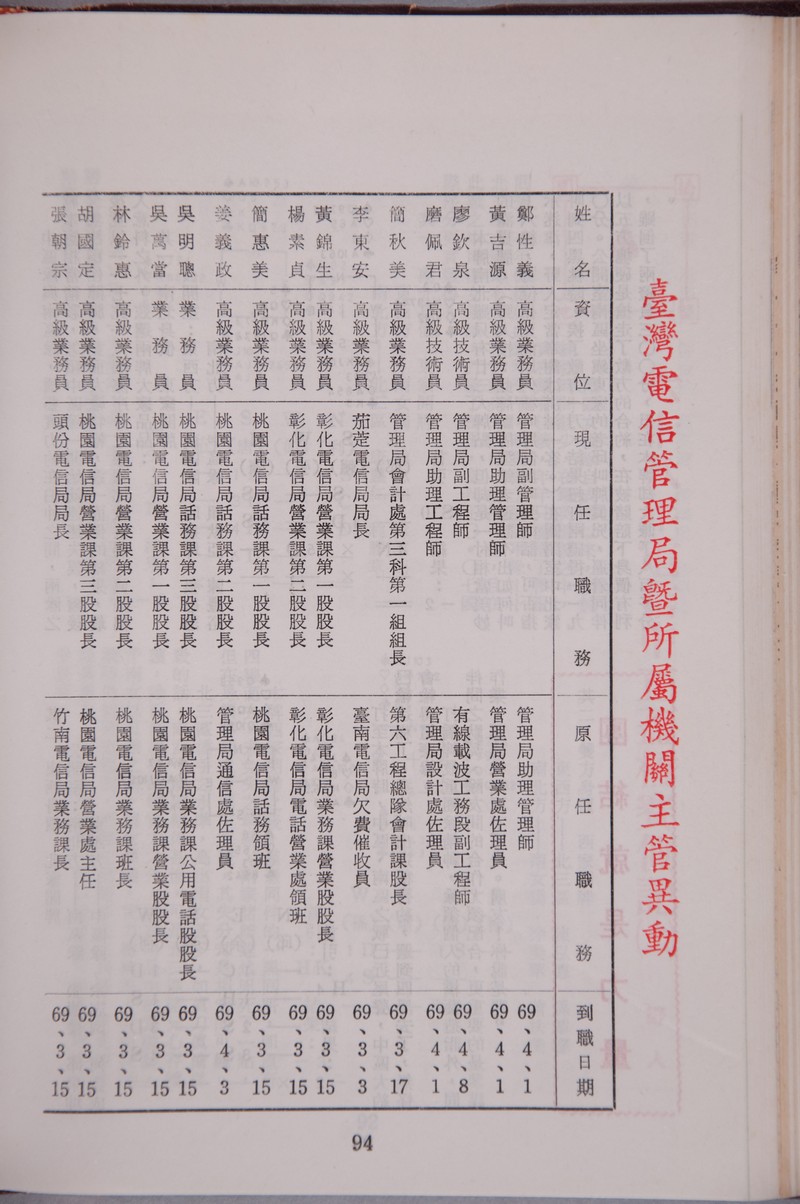 臺灣電信管理局暨所屬機關主管異動
姓名 資位 現任職務 原任職務 到職日期
鄭性義 高級業務員 管理局副管理師 管理局助理管理師 69、4、1
黃吉源 高級業務員 管理局助理管理師 管理局營業處佐理員 69、4、1
廖欽泉 高級技術員 管理局副工程師 有線載波工務段副工程師 69、4、8
磨佩君 高級技術員 管理局助理工程師 管理局設計處佐理員 69、4、1
簡秋美 高級業務員 管理局會計處第三科第一組組長 第六工程總隊會計課股長 69、3、17
李東安 高級業務員 茄萣電信局局長 臺南電信局欠費催收員 69、3、3
黃錦生 高級業務員 彰化電信局營業課第一股股長 彰化電信局業務課營業股股長 69、3、15
楊素貞 高級業務員 彰化電信局營業課第二股股長 彰化電信局電話營業處領班 69、3、15
簡惠美 高級業務員 桃園電信局話務課第一股股長 桃園電信局話務領班 69、3、15
姜義政 高級業務員 桃園電信局話務課第二股股長 管理局通信處佐理員 69、4、3
吳明聰 業務員 桃園電信局話務課第三股股長 桃園電信局業務課公用電話股股長 69、3、15
吳萬當 業務員 桃園電信局營業課第一股股長 桃園電信局業務課營業股股長 69、3、15
林鈴惠 高級業務員 桃園電信局營業課第二股股長 桃園電信局業務課班長 69、3、15
胡國定 高級業務員 桃園電信局營業課第三股股長 桃園電信局營業處主任 69、3、15
張朝宗 高級業務員 頭份電信局局長 竹南電信局業務課長 69、3、15
94